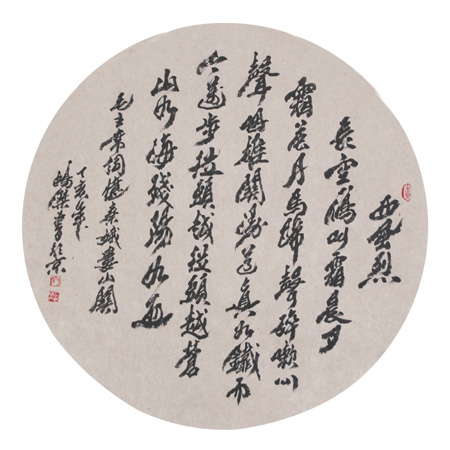 西風烈
長空鴈叫霜晨月
霜晨月馬蹄聲碎喇叭
聲咽雄關漫道真如鐵而
今邁步從頭越從頭越蒼
山如海殘陽如血
毛主席詞憶秦娥婁山關
丁亥年
書於京